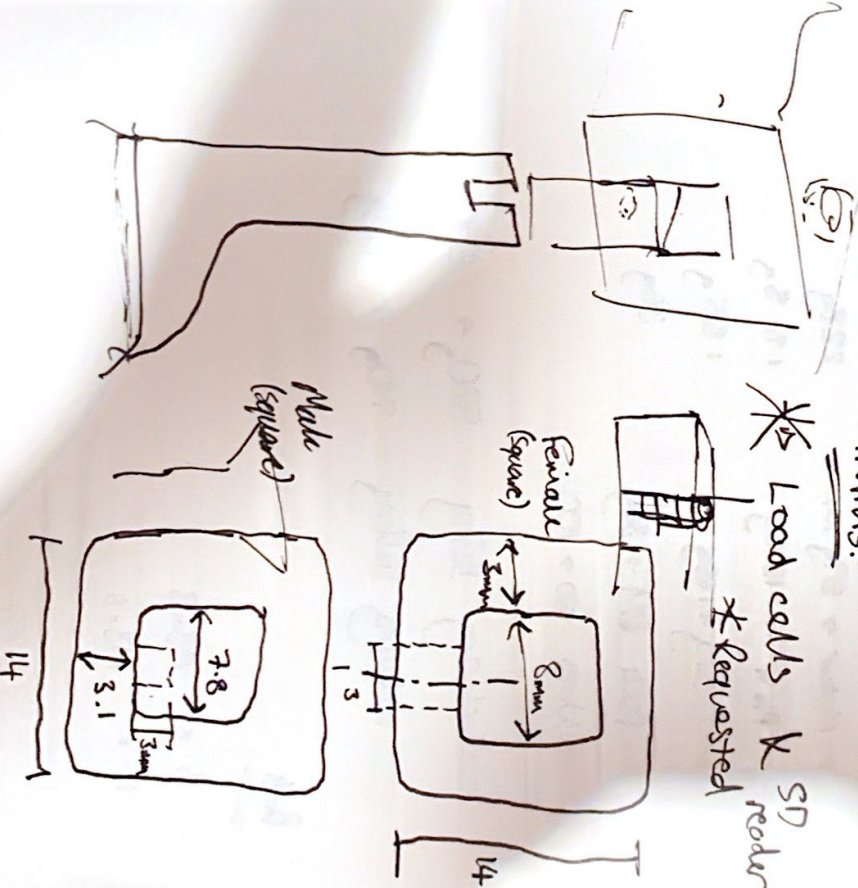 * Load cells & SD reader
* Requested
Female
(square)
3mm
8mm
3
14
Male
(square)
7.8
3.1
3mm
14